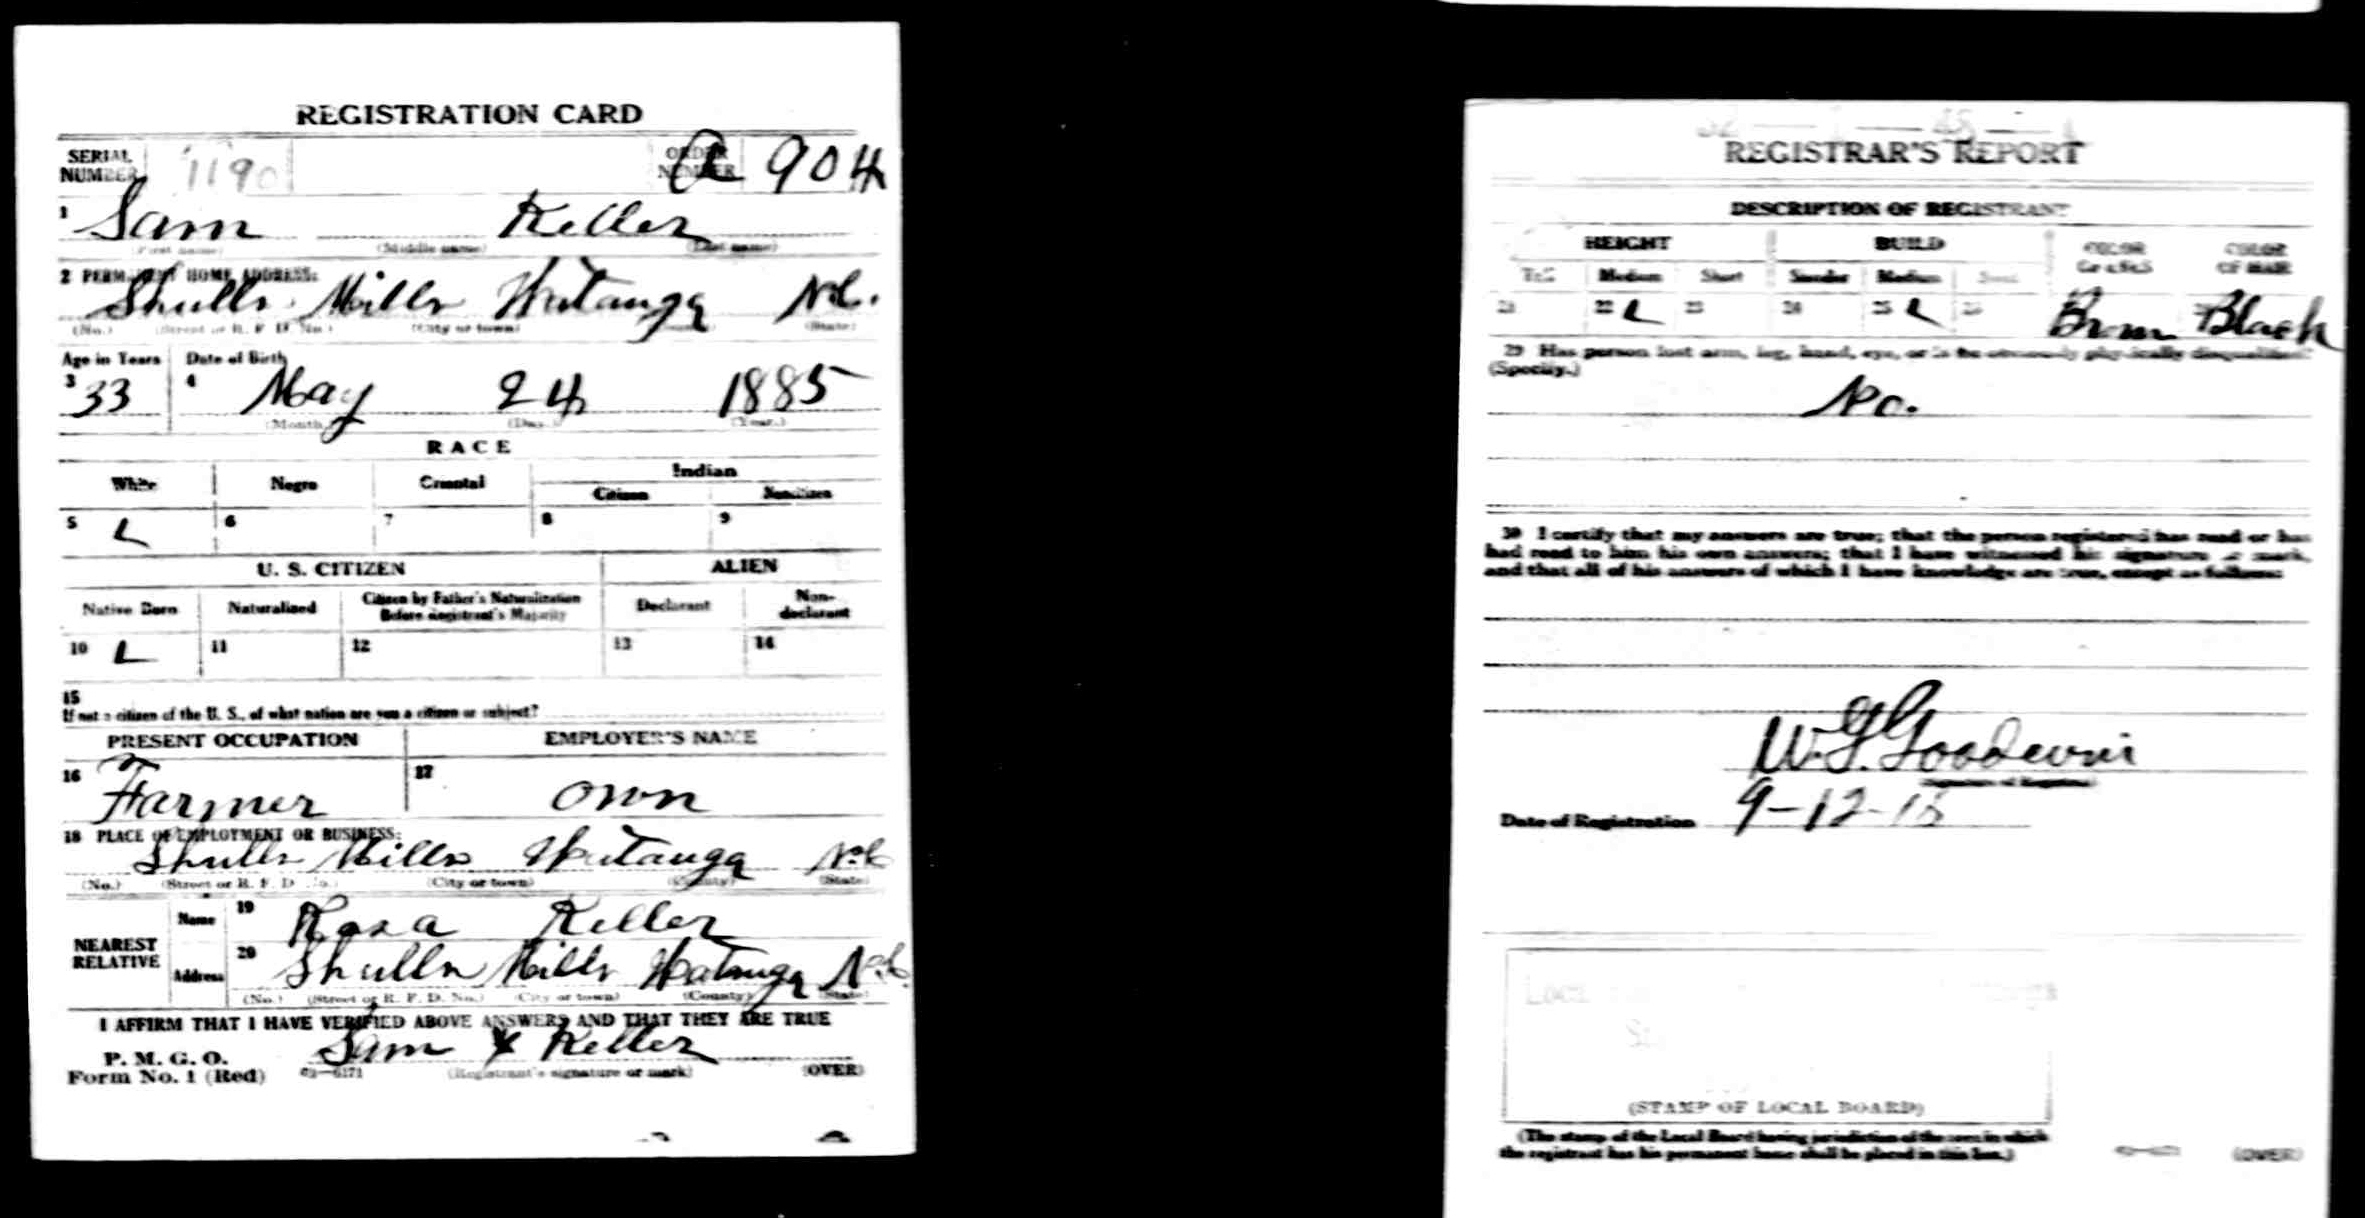 REGISTRATION CARD
SERIAL NUMBER 1190 ORDER NUMBER A 904
1 Sam Keller
(First name) (Middle name) (Last name)
2 PERMANENT HOME ADDRESS:
Shulls Mills Watauga N.C.
(No.) (Street or R. F. D. No.) (City or town) (County) (State)
Age in Years Date of Birth
3 33 4 May 24 1885
(Month.) (Day.) (Year.)
RACE
White Negro Oriental Indian
Citizen Noncitizen
5 L 6 7 8 9
U. S. CITIZEN ALIEN
Native Born Naturalized Citizen by Father's Naturalization Before Registrant's Majority Declarant Non-declarant
10 L 11 12 13 14
15
If not a citizen of the U. S., of what nation are you a citizen or subject?
PRESENT OCCUPATION EMPLOYER'S NAME
16 Farmer 17 own
18 PLACE OF EMPLOYMENT OR BUSINESS:
Shulls Mills Watauga N.C.
(No.) (Street or R. F. D. No.) (City or town) (County) (State)
NEAREST RELATIVE
Name 19 Rosa Keller
Address 20 Shulls Mills Watauga N.C.
(No.) (Street or R. F. D. No.) (City or town) (County) (State)
I AFFIRM THAT I HAVE VERIFIED ABOVE ANSWERS AND THAT THEY ARE TRUE
P. M. G. O.
Form No. 1 (Red) 03—6171 Sam X Keller
(Registrant's signature or mark) (OVER)
REGISTRAR'S REPORT
DESCRIPTION OF REGISTRANT
HEIGHT BUILD COLOR OF EYES COLOR OF HAIR
Tall Medium Short Slender Medium Stout
21 22 L 23 24 25 L 26 Brown Black
29 Has person lost arm, leg, hand, eye, or is he obviously physically disqualified?
(Specify.)
No.
30 I certify that my answers are true; that the person registered has read or has
had read to him his own answers; that I have witnessed his signature or mark,
and that all of his answers of which I have knowledge are true, except as follows:
W.G. Goodwin
(Signature of Registrar)
Date of Registration 9-12-18
(STAMP OF LOCAL BOARD)
(The stamp of the Local Board having jurisdiction of the area in which
the registrant has his permanent home shall be placed in this box.)
(OVER)